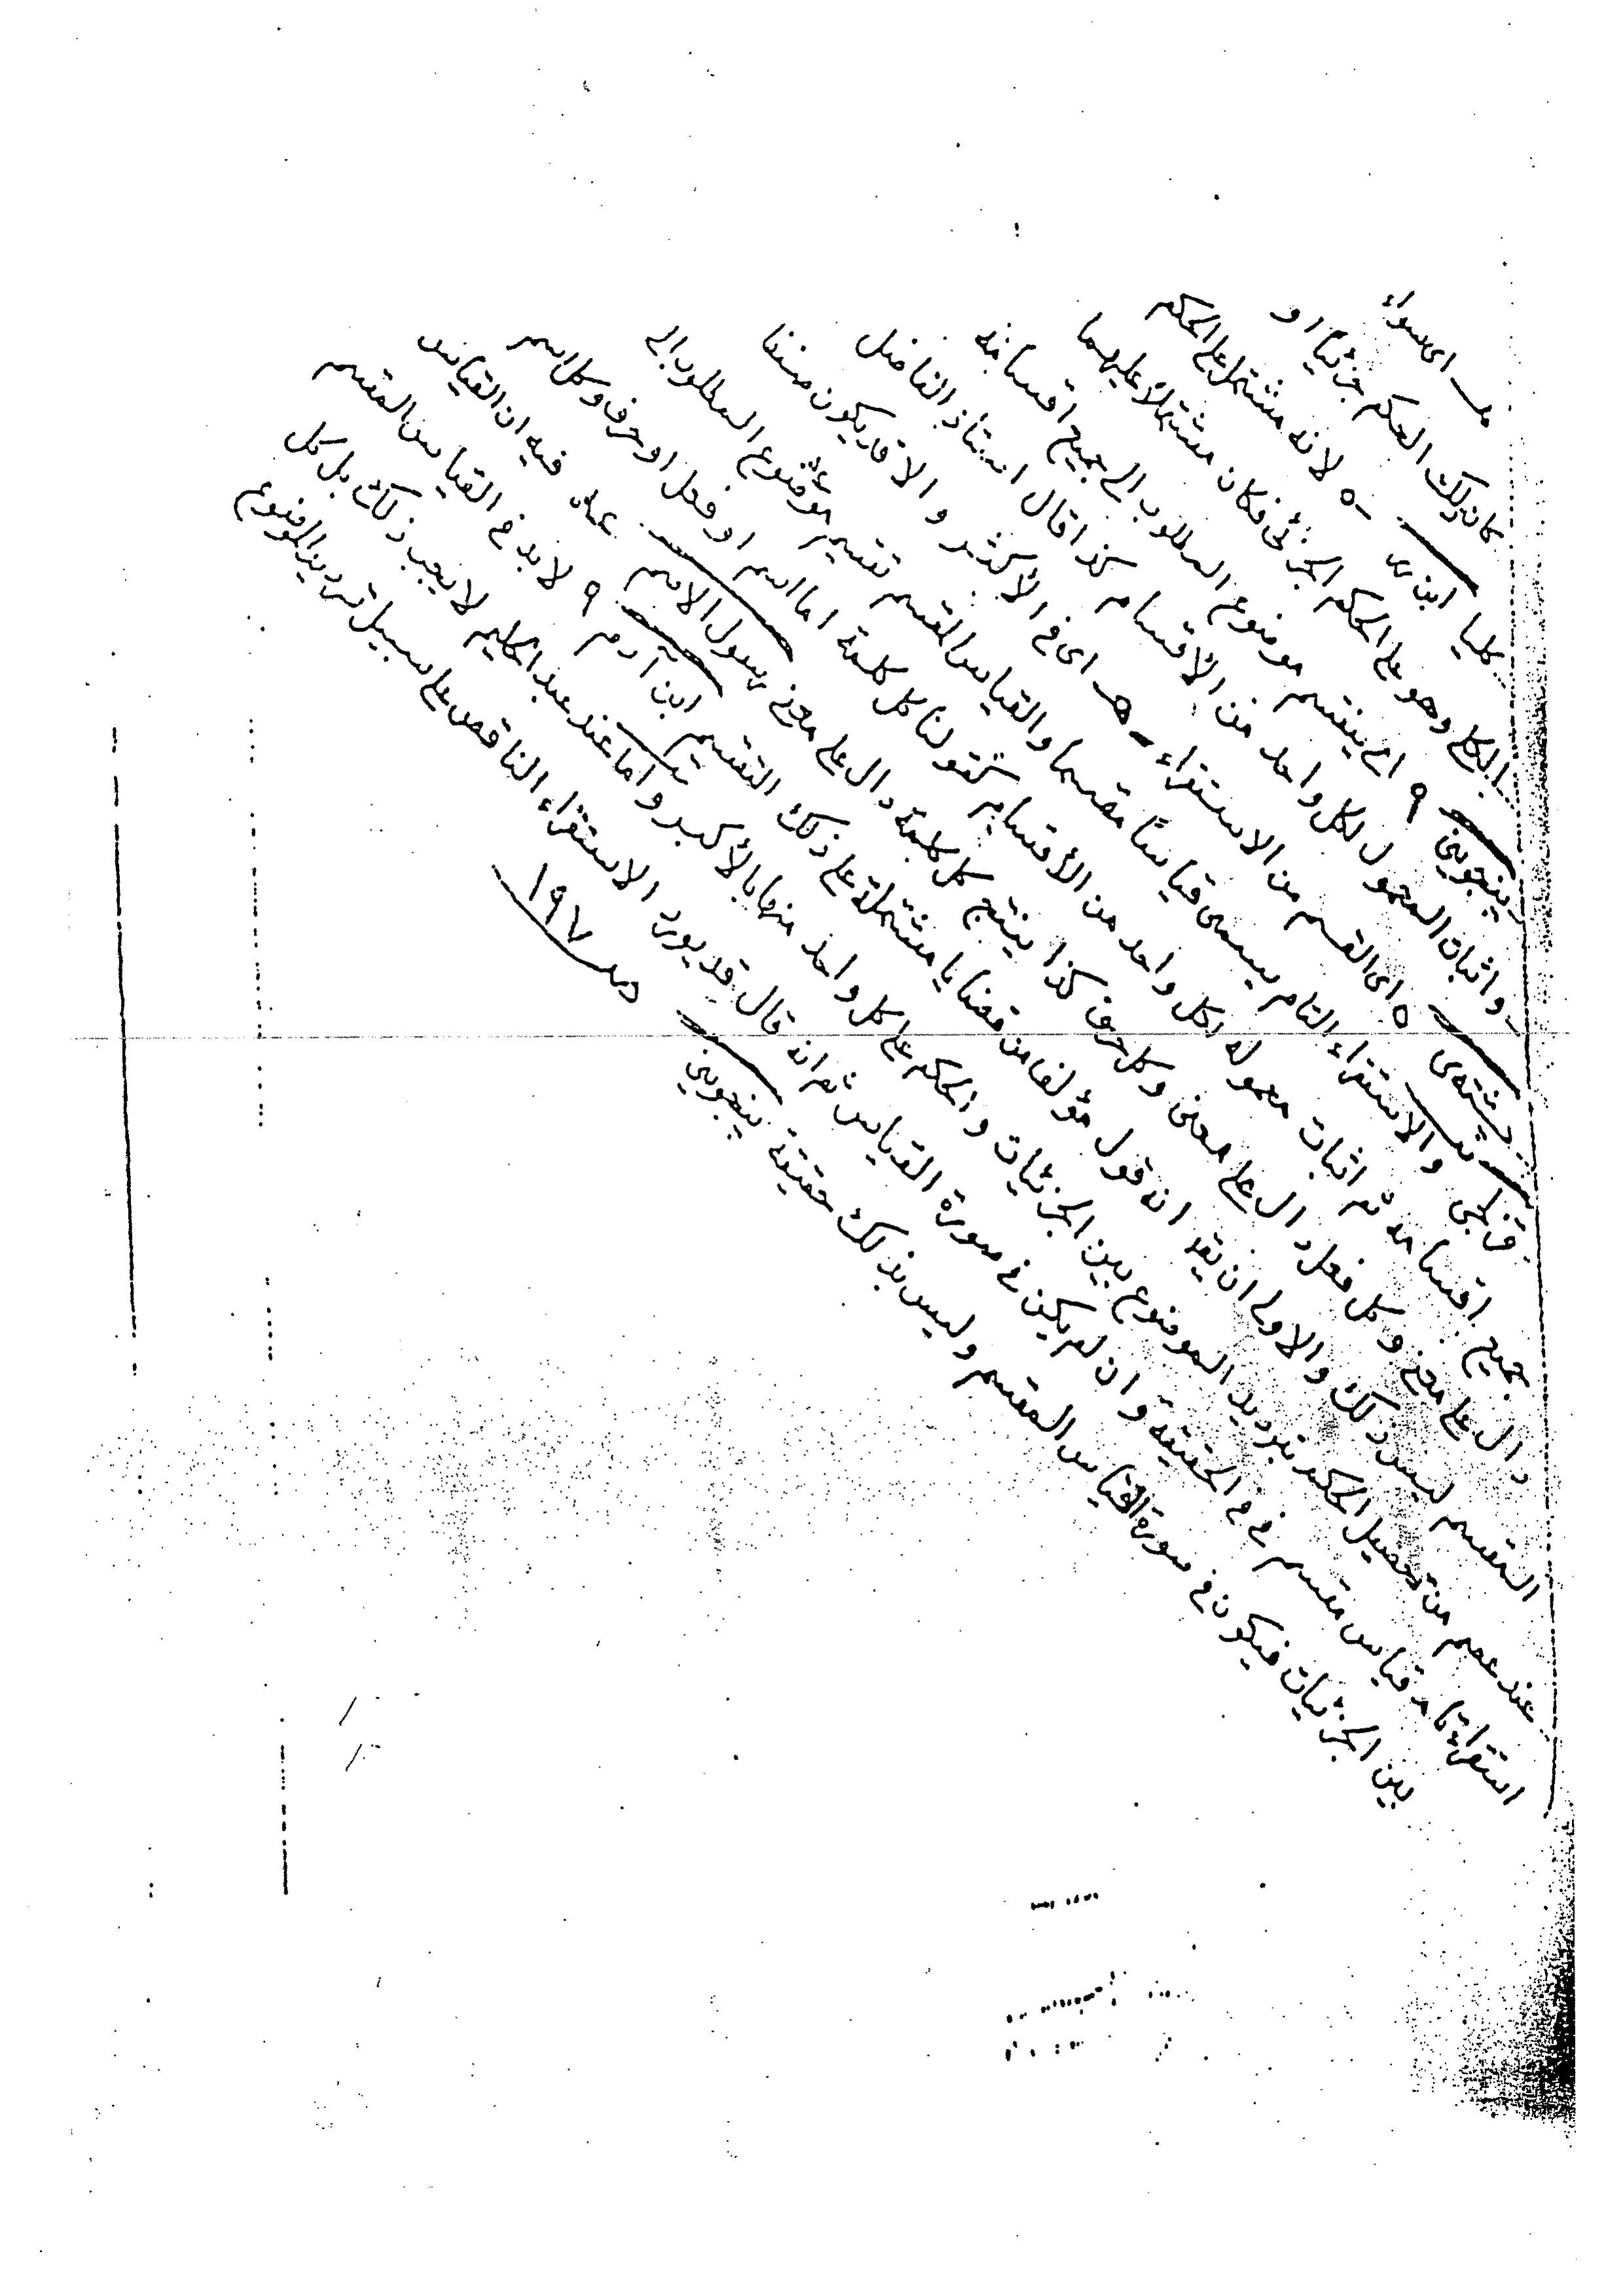 ـهـ اى سواء
كان ذلك الحكم جزئيا او
كليا ابن ـه لانه مشتمل على الحكم
الكلى وهو على الحكم الجزئى فكان مشتملا عليهما
ينجوينى ٩ اى ينقسم موضوع المطلوب الى جميع اقسامه
واثبات المحمول لكل واحد من الأقسام كذا قال استاذ الفاضل
ه اى القسم من الاستقراء ـهـ اى فى الأكثر والا قد يكون
قزلجى والاستقراء التام يسمى قياسا مقسما والقياس المقسم تقسيم موضوع المطلوب الى
جميع اقسامه ثم اثبات محموله لكل واحد من الأقسام كقولنا كل كلمة اما اسم او فعل او حرف وكل اسم
دال على معنى وكل فعل دال على معنى وكل حرف كذا ينتج كل كلمة دال على معنى رسول الاسم فيه ان القياس
المقسم ليس ذلك والاولى ان يقد انه قول مؤلف من قضايا مشتملة على ذلك التقسيم ابن آدم ٩ لابد فى القياس المقسم
عندهم من تحصيل الحكم بترديد الموضوع بين الجزئيات والحكم على كل واحد منها بالأكبر واما عند عبد الحكيم لا يجب ذلك بل كل
استقراء تام قياس مقسم فى الحقيقة وان لم يكن فى صورة القياس ثم انه قال قد يورد الاستقراء الناقص على سبيل ترديد الموضوع
بين الجزئيات فيكون فى صورة القياس المقسم وليس بذلك حقيقة ينجوينى
صـ ١٩٧